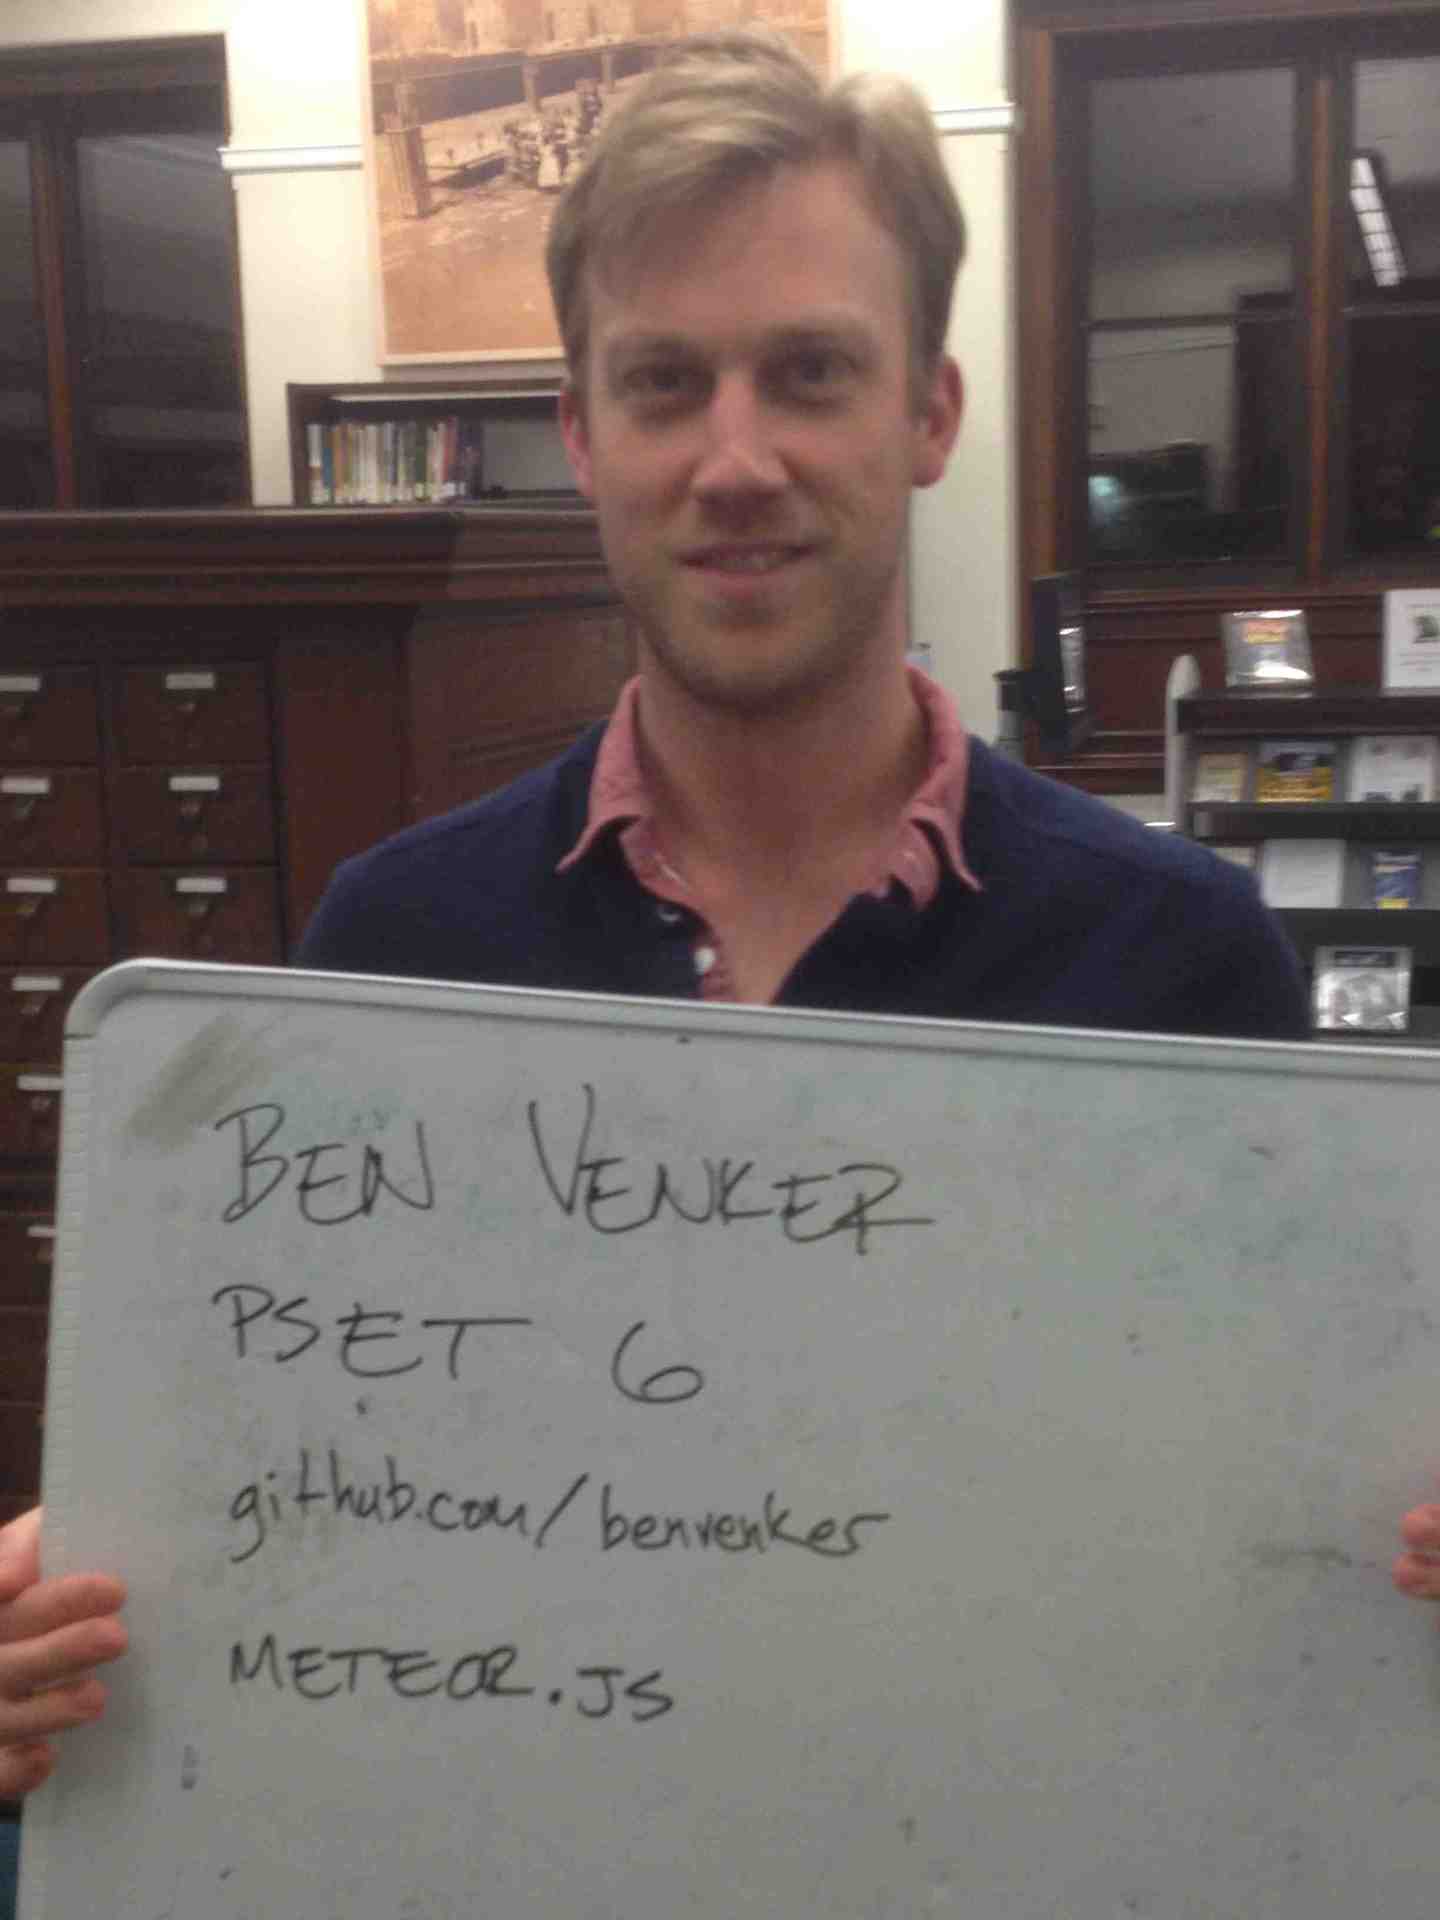 BEN VENKER
PSET 6
github.com/benvenker
METEOR.JS